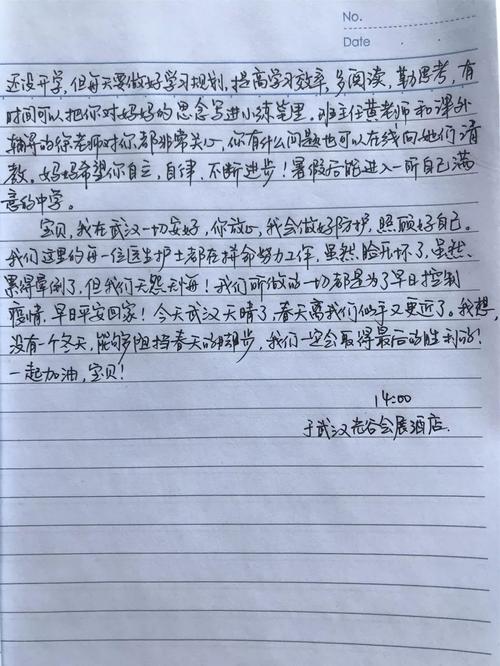 No.
Date
还没开学，但每天要做好学习规划，提高学习效率，多阅读，勤思考，有
时间可以把你对妈妈的思念写进小练笔里，班主任黄老师和课外
辅导的徐老师对你都非常关心，你有什么问题也可以在线向她们请
教。妈妈希望你自立，自律，不断进步！暑假后能进入一所自己满
意的中学。
宝贝，我在武汉一切安好，你放心，我会做好防护，照顾好自己。
我们这里的每一位医生护士都在拼命努力工作，虽然脸压坏了，虽然
累得晕倒了，但我们无怨无悔！我们所做的一切都是为了早日控制
疫情，早日平安回家！今天武汉天晴了，春天离我们似乎又更近了。我想，
没有一个冬天，能够阻挡春天的脚步，我们一定会取得最后的胜利的！
一起加油，宝贝！
14:00
于武汉光谷会展酒店